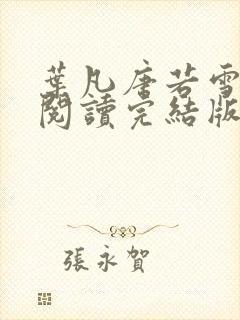 葉凡唐若雪
閱讀完結版
張永賀